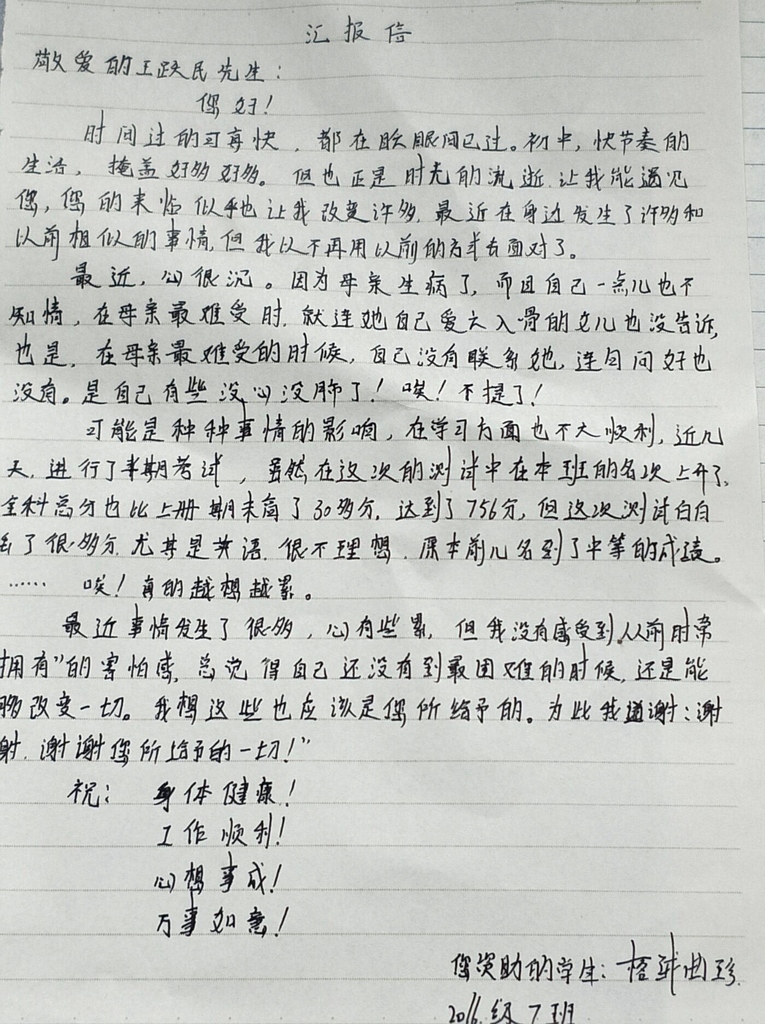 汇报信
敬爱的王跃民先生：
您好！
时间过的可真快，都在眨眼间已过。初中，快节奏的
生活，掩盖好多好多。但也正是时光的流逝，让我能遇见
您，您的来临似乎也让我改变许多，最近在身边发生了许多和
以前相似的事情，但我以不再用以前的方式去面对了。
最近，心很沉。因为母亲生病了，而且自己一点儿也不
知情，在母亲最难受时，就连她自己爱之入骨的女儿也没告诉，
也是，在母亲最难受的时候，自己没有联系她，连句问好也
没有。是自己有些没心没肺了！唉！不提了！
可能是种种事情的影响，在学习方面也不大顺利，近几
天，进行了半期考试，虽然在这次的测试中在本班的名次上升了，
全科总分也比上册期末高了30多分，达到了756分，但这次测试白白
丢了很多分，尤其是英语，很不理想，原本前几名到了中等的成绩。
…… 唉！真的越想越累。
最近事情发生了很多，心有些累，但我没有感受到“从前时常
拥有”的害怕感，总觉得自己还没有到最困难的时候，还是能
够改变一切。我想这些也应该是您所给予的。为此我道谢：谢
谢，谢谢您所给予的一切！”
祝：身体健康！
工作顺利！
心想事成！
万事如意！
您资助的学生：曲珍
2016级7班